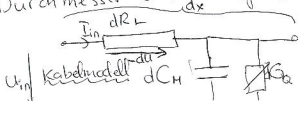 Durchmesse
dx
I_in dR_L
-du
U_in Kabelmodell dC_M G_Q